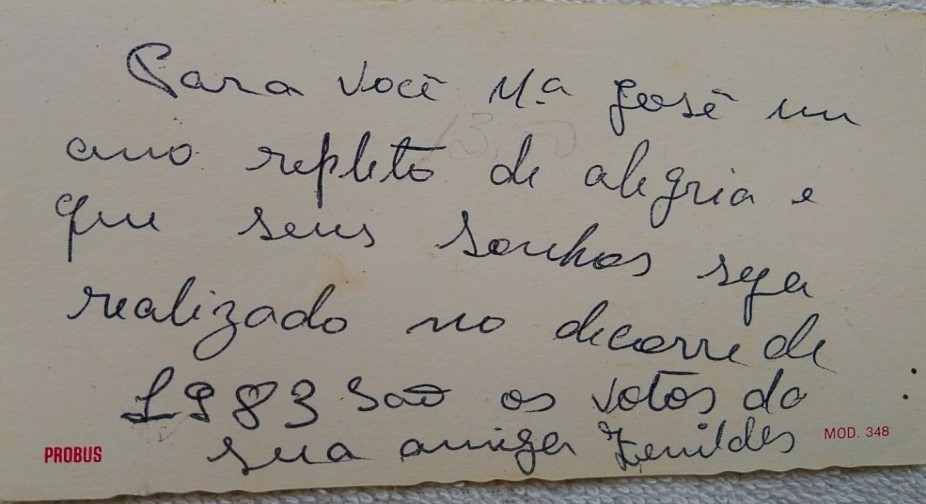 Para você Mª José um
ano repleto de alegria e
que seus sonhos seja
realizado no decorre de
1983 são os votos da
sua amiga Zenildes
PROBUS
MOD. 348